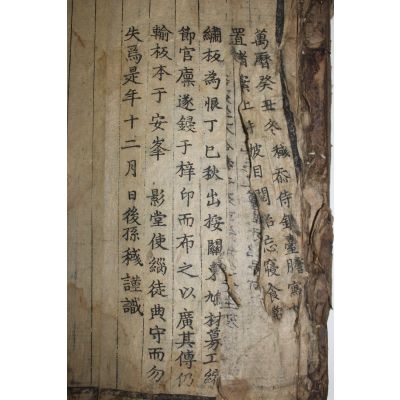 萬曆癸丑冬穢忝侍銀臺謄寫
置諸案上時披目閱怡忘寢食
繡板為恨丁巳秋出按關東鳩材募工
節官廩遂鋟于梓印而布之以廣其傳仍
輸板本于安峯 影堂使緇徒典守而勿
失焉是年十二月 日後孫穢謹識